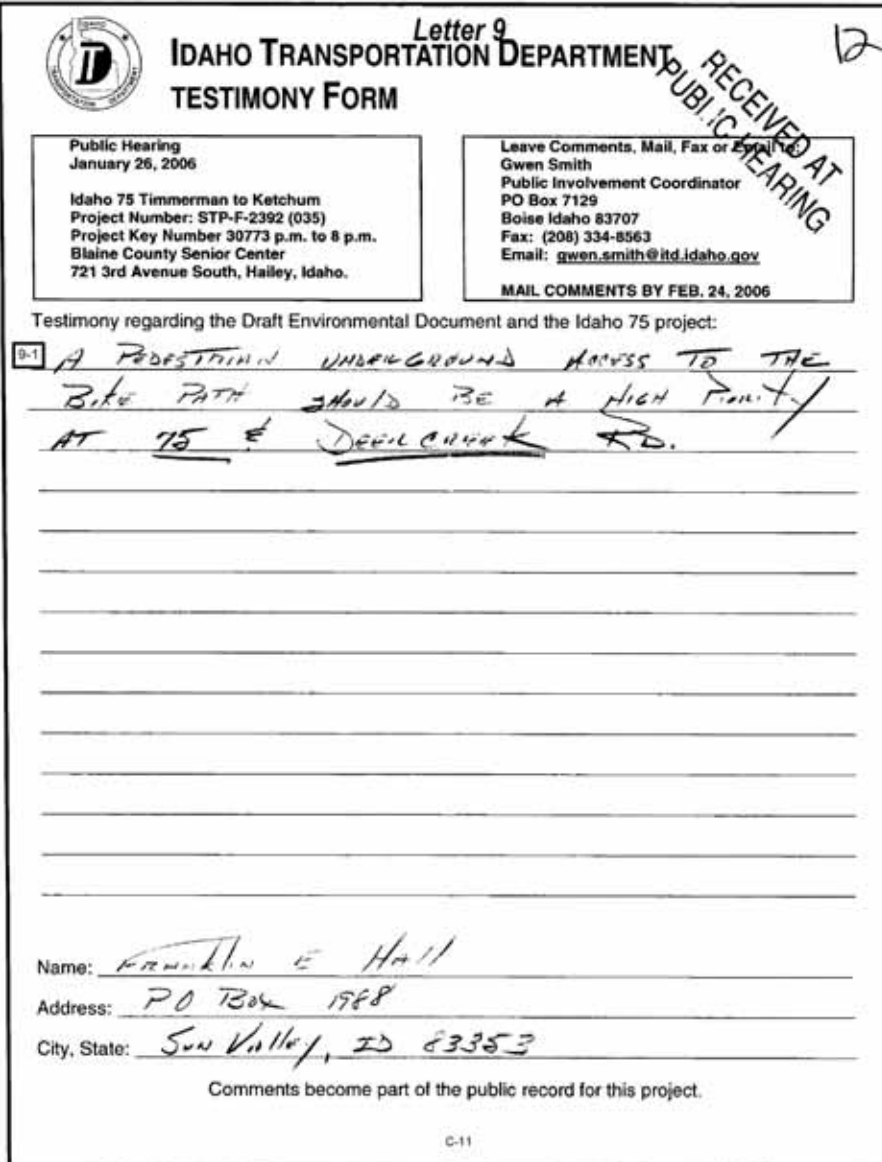 Letter 9
12
IDAHO TRANSPORTATION DEPARTMENT
TESTIMONY FORM
RECEIVED AT
PUBLIC HEARING
Public Hearing
January 26, 2006
Idaho 75 Timmerman to Ketchum
Project Number: STP-F-2392 (035)
Project Key Number 30773 p.m. to 8 p.m.
Blaine County Senior Center
721 3rd Avenue South, Hailey, Idaho.
Leave Comments, Mail, Fax or Email to:
Gwen Smith
Public Involvement Coordinator
PO Box 7129
Boise Idaho 83707
Fax: (208) 334-8563
Email: gwen.smith@itd.idaho.gov
MAIL COMMENTS BY FEB. 24, 2006
Testimony regarding the Draft Environmental Document and the Idaho 75 project:
9-1 A PEDESTRIAN UNDERGROUND ACCESS TO THE
BIKE PATH SHOULD BE A HIGH Priority
AT 75 & DEER CREEK RD.
Name: Franklin E Hall
Address: PO Box 1988
City, State: Sun Valley, ID 83353
Comments become part of the public record for this project.
C-11